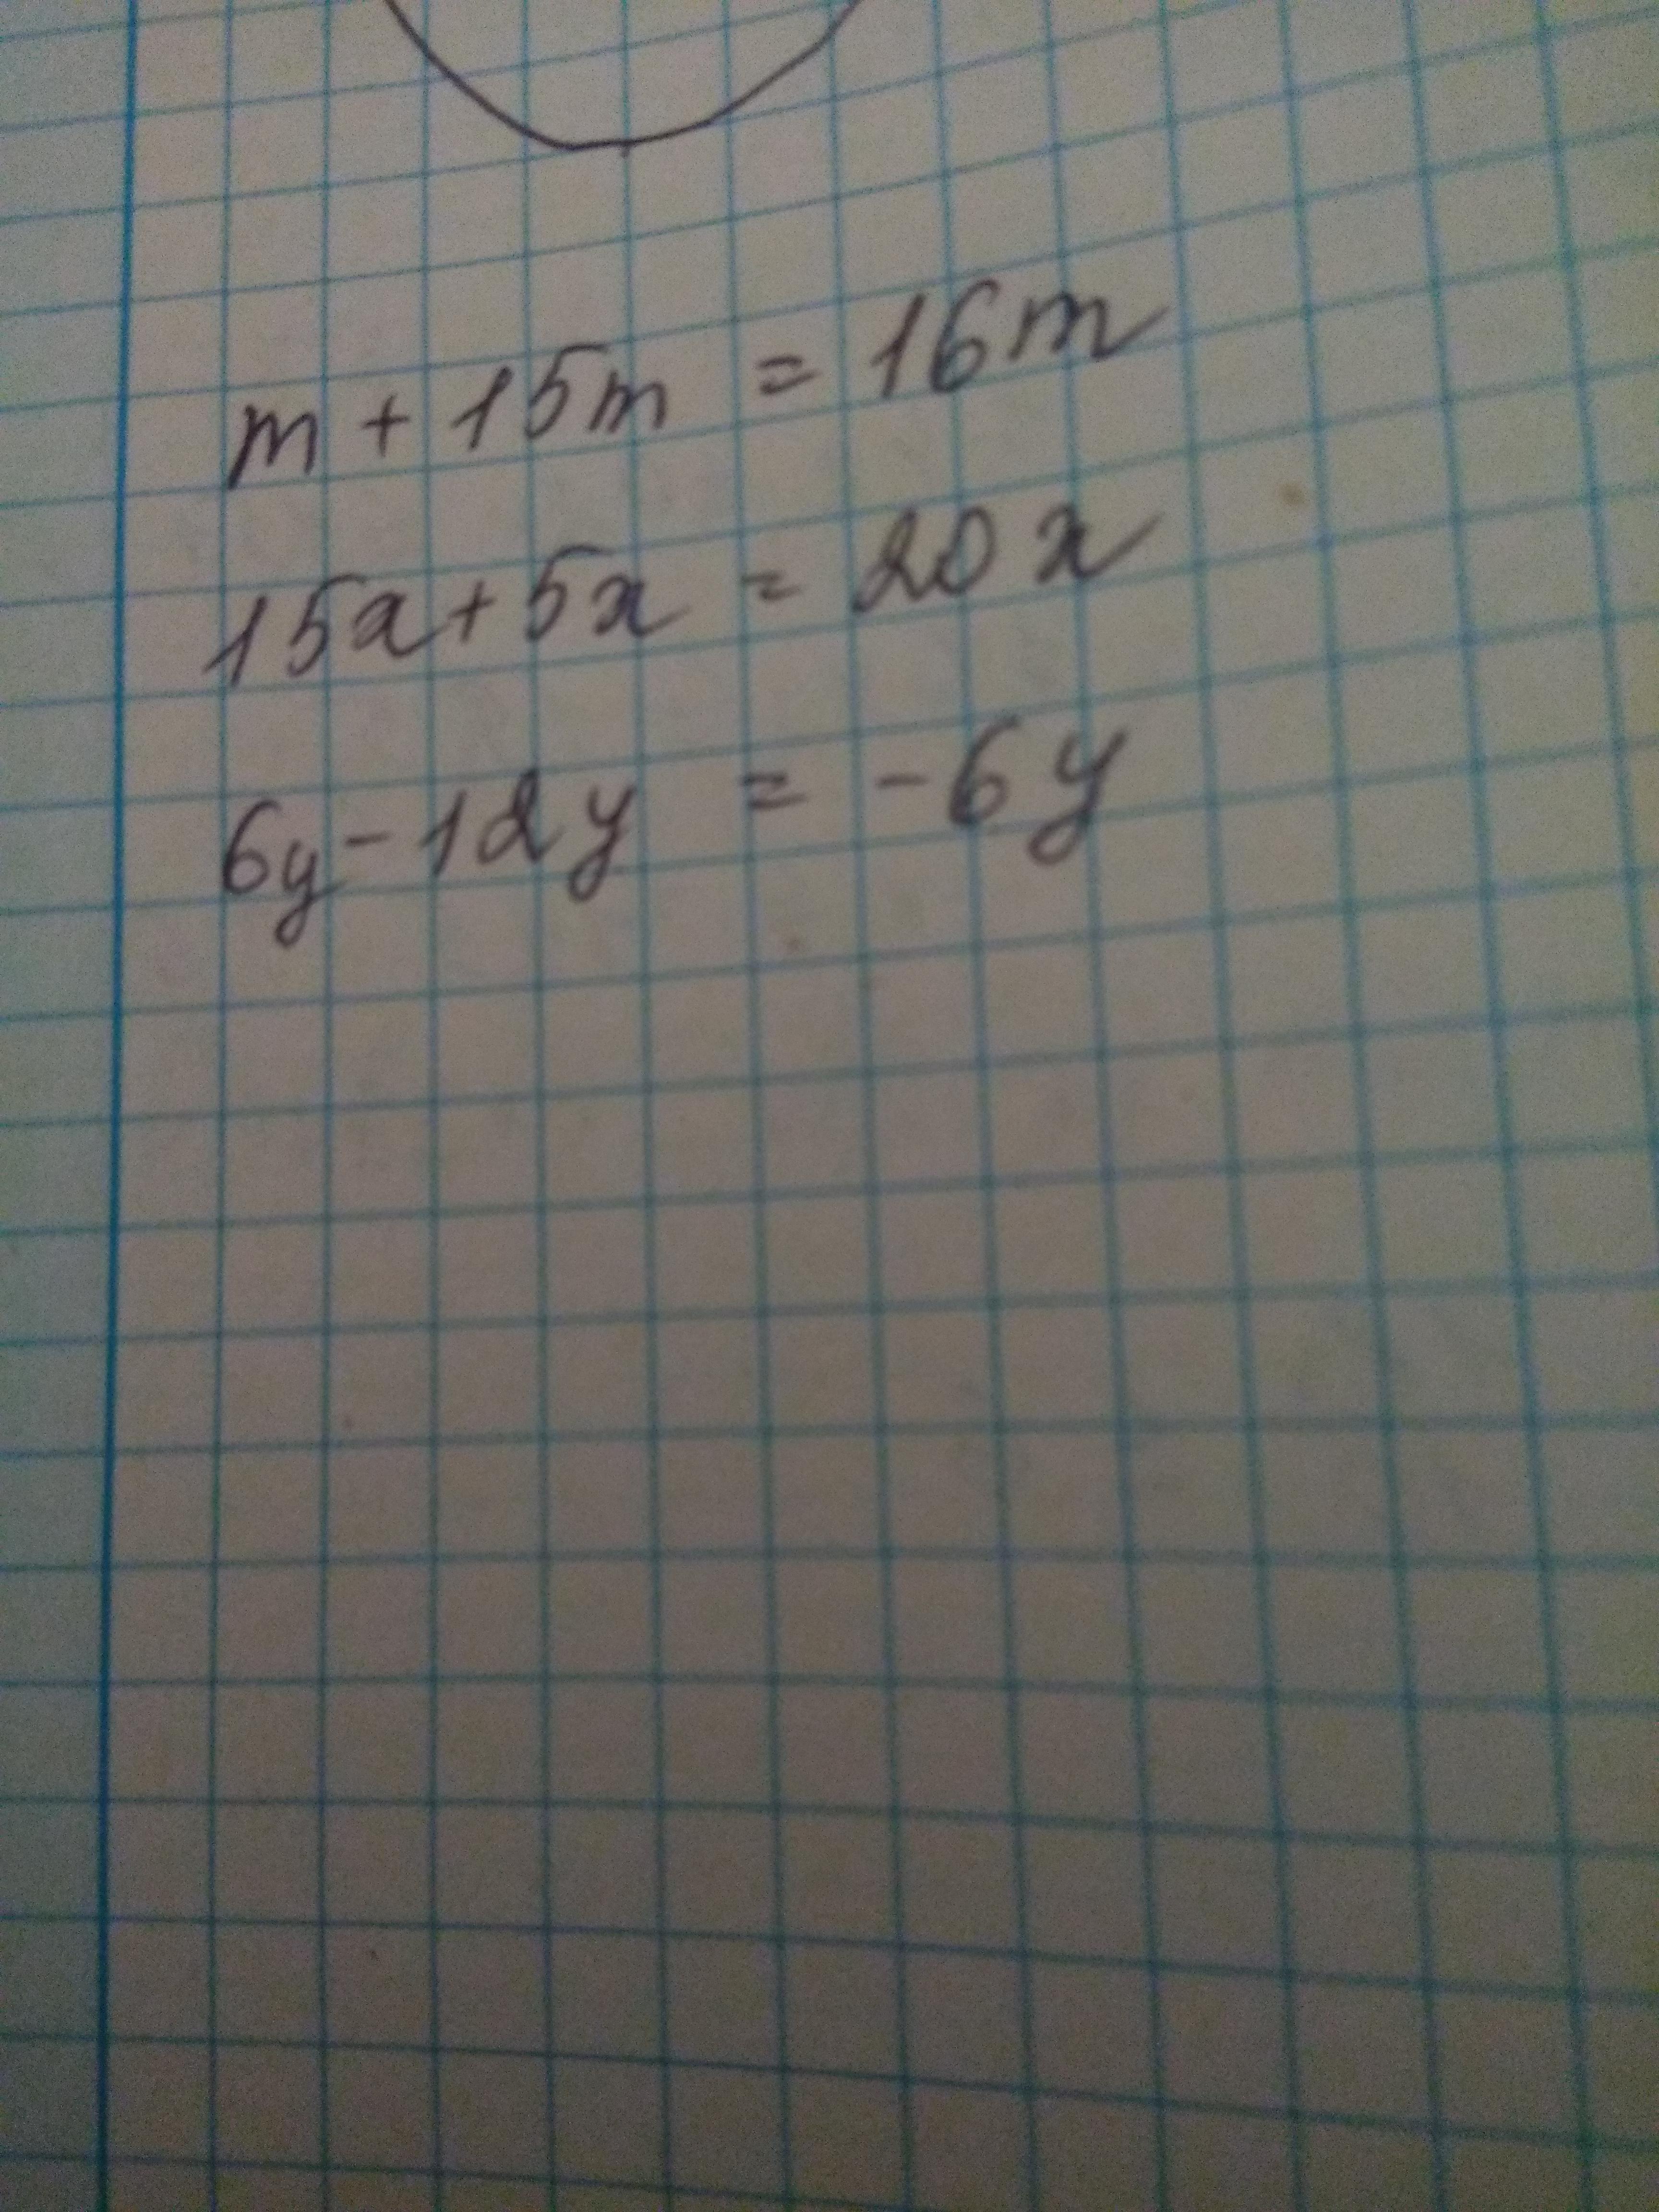 m + 15m = 16m
15x + 5x = 20x
6y - 12y = -6y